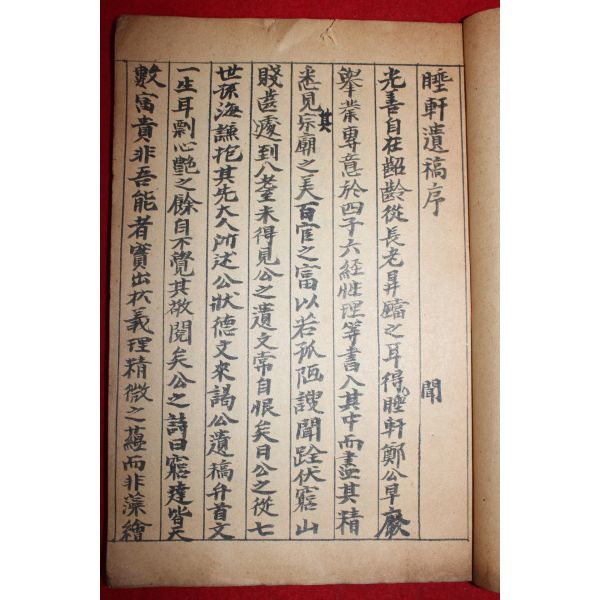 睡軒遺稿序
聞
光善自在齠齡從長老畀 之耳得睡軒鄭公早廢
擧業專意於四子六経性理等書入其中而盡其精
悉見其宗廟之美百官之富以若孤陋謏聞跧伏窮山
賤齒遽到八耋未得見公之遺文常自恨矣日公之從七
世孫海謙抱其先大人所述公狀德文來謁公遺稿弁首文
一生耳剽心艶之餘自不覺其敬閱矣公之詩曰窮達皆天
數富貴非吾能者實出於義理精微之蘊而非藻繪